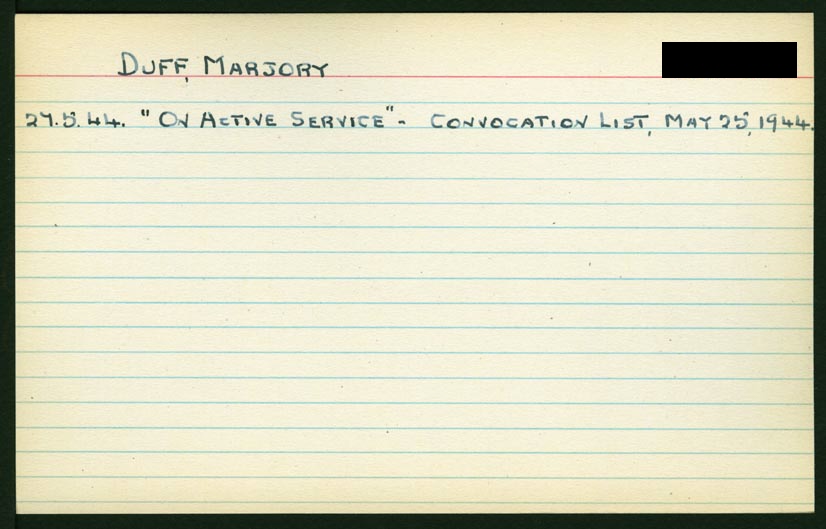 DUFF, MARJORY
27.5.44. "ON ACTIVE SERVICE" - CONVOCATION LIST, MAY 25, 1944.